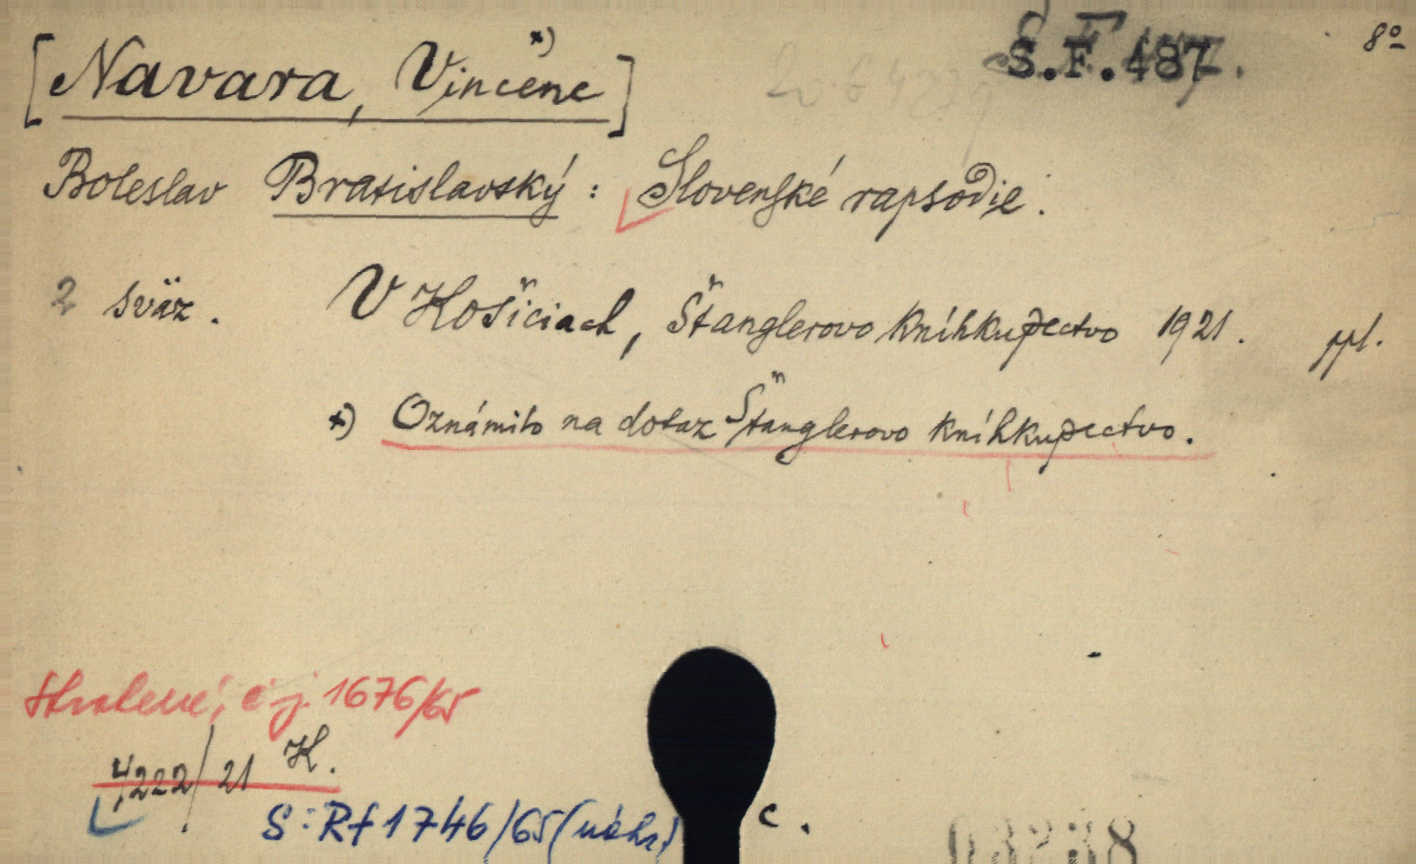 [Navara, Vincenc x)] S.F.487. 8°
Boleslav Bratislavský: Slovenské rapsodie.
2 sväz. V Košiciach, Štanglerovo kníhkupectvo 1921. ppl.
x) Oznámilo na dotaz Štanglerovo kníhkupectvo.
Stratené, č.j. 1676/65
4222/21 K.
S: Rf 1746/65 (náhr) C.